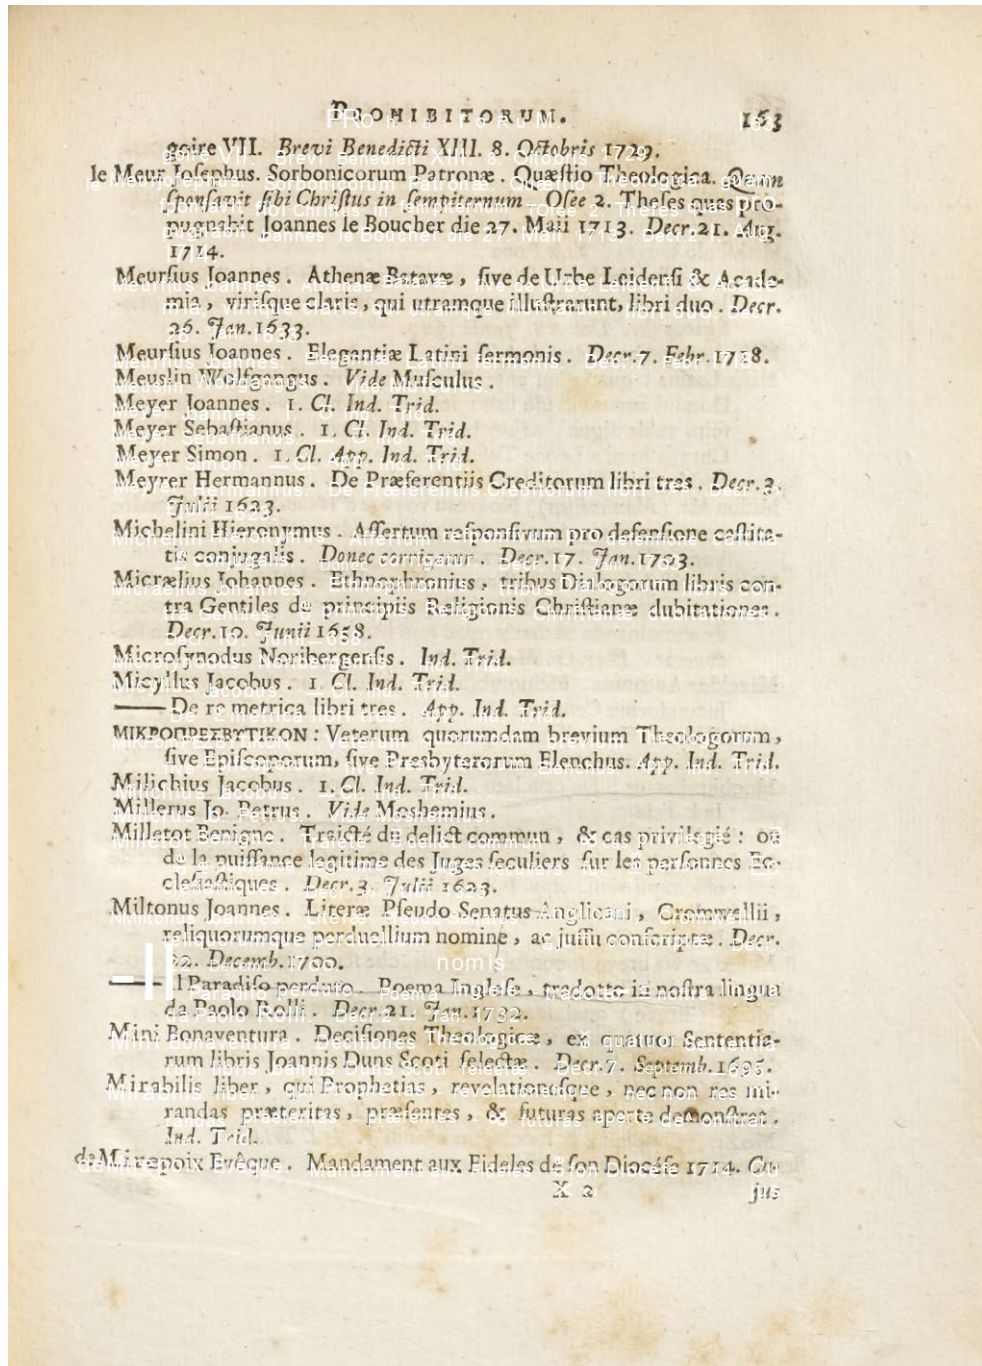 PROHIBITORUM. 163
goire VII. Brevi Benedicti XIII. 8. Octobris 1729.
le Meur Josephus. Sorbonicorum Patronæ. Quæſtio Theologica. Quam
ſponſavit ſibi Chriſtus in ſempiternum Oſee 2. Theſes quas pro-
pugnabit Joannes le Boucher die 27. Maii 1713. Decr. 21. Aug.
1714.
Meurſius Joannes. Athenæ Batavæ, ſive de Urbe Leidenſi & Acade-
mia, viriſque claris, qui utramque illuſtrarunt, libri duo. Decr.
26. Jan. 1633.
Meurſius Joannes. Elegantiæ Latini ſermonis. Decr. 7. Febr. 1718.
Meuslin Wolfgangus. Vide Muſculus.
Meyer Joannes. 1. Cl. Ind. Trid.
Meyer Sebaſtianus. 1. Cl. Ind. Trid.
Meyer Simon. 1. Cl. App. Ind. Trid.
Meyrer Hermannus. De Præferentiis Creditorum libri tres. Decr. 3.
Julii 1623.
Michelini Hieronymus. Aſſertum reſponſivum pro defenſione caſtita-
tis conjugalis. Donec corrigatur. Decr. 17. Jan. 1703.
Micrælius Johannes. Ethnophronius, tribus Dialogorum libris con-
tra Gentiles de principiis Religionis Chriſtianæ dubitationes.
Decr. 10. Junii 1658.
Microſynodus Noribergenſis. Ind. Trid.
Micyllus Jacobus. 1 Cl. Ind. Trid.
—— De re metrica libri tres. App. Ind. Trid.
ΜΙΚΡΟΠΡΕΣΒΥΤΙΚΟΝ: Veterum quorumdam brevium Theologorum,
ſive Epiſcoporum, ſive Presbyterorum Elenchus. App. Ind. Trid.
Milichius Jacobus. 1. Cl. Ind. Trid.
Millerus Jo. Petrus. Vide Moshemius.
Milletot Benigne. Traicté du delict commun, & cas privilegié: ou
de la puiſſance legitime des Juges ſeculiers ſur les perſonnes Ec-
cleſiaſtiques. Decr. 3. Julii 1623.
Miltonus Joannes. Literæ Pſeudo Senatus Anglicani, Cromwellii,
reliquorumque perduellium nomine, ac juſſu conſcriptæ. Decr.
22. Decemb. 1700.
—— Il Paradiſo perduto. Poema Ingleſe, tradotto in noſtra lingua
da Paolo Rolli. Decr. 21. Jan. 1732.
Mini Bonaventura. Deciſiones Theologicæ, ex quatuor Sententia-
rum libris Joannis Duns Scoti ſelectæ. Decr. 7. Septemb. 1695.
Mirabilis liber, qui Prophetias, revelationeſque, nec non res mi-
randas præteritas, præſentes, & futuras aperte demonſtrat.
Ind. Trid.
de Mirepoix Evêque. Mandament aux Fideles de ſon Diocéſe 1714. Cu-
X 2 jus